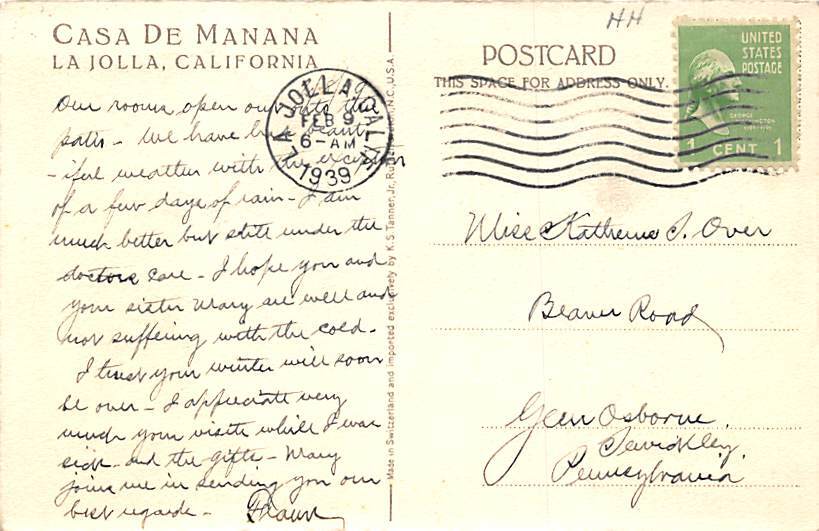 HH
CASA DE MANANA
LA JOLLA, CALIFORNIA
POSTCARD
THIS SPACE FOR ADDRESS ONLY.
UNITED
STATES
POSTAGE
GEORGE
WASHINGTON
1 CENT 1
LA JOLLA, CALIF.
FEB 9
6-AM
1939
Our rooms open out into the
patio - We have had beauti
- iful weather with the exception
of a few days of rain - I am
much better but still under the
doctors care - I hope you and
your sister Mary are well and
not suffering with the cold -
I trust your winter will soon
be over - I appreciate very
much your visits while I was
sick - and the gifts - Mary
joins me in sending you our
best regards -
Made in Switzerland and imported exclusively by K.S. Tanner, Jr., INC., U.S.A.
Miss Katherine S. Over
Beaver Road
Glen Osborne,
Sewickley,
Pennsylvania